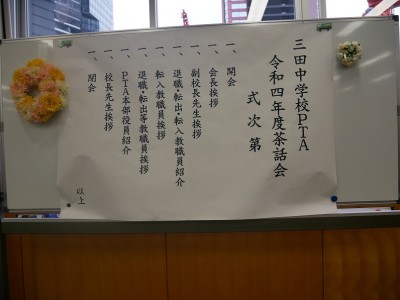 三田中学校PTA
令和四年度茶話会
式次第
一、開会
一、会長挨拶
一、副校長先生挨拶
一、退職・転出・転入教職員紹介
一、転入教職員挨拶
一、退職・転出等教職員挨拶
一、PTA本部役員紹介
一、校長先生挨拶
一、閉会
以上